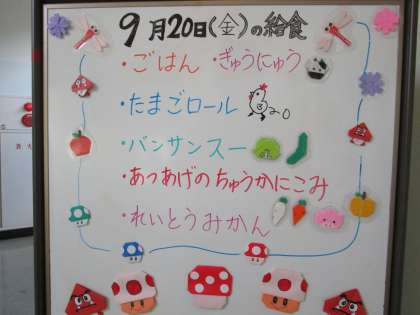 9月20日(金)の給食
・ごはん ・ぎゅうにゅう
・たまごロール
・バンサンスー
・あつあげのちゅうかにこみ
・れいとうみかん